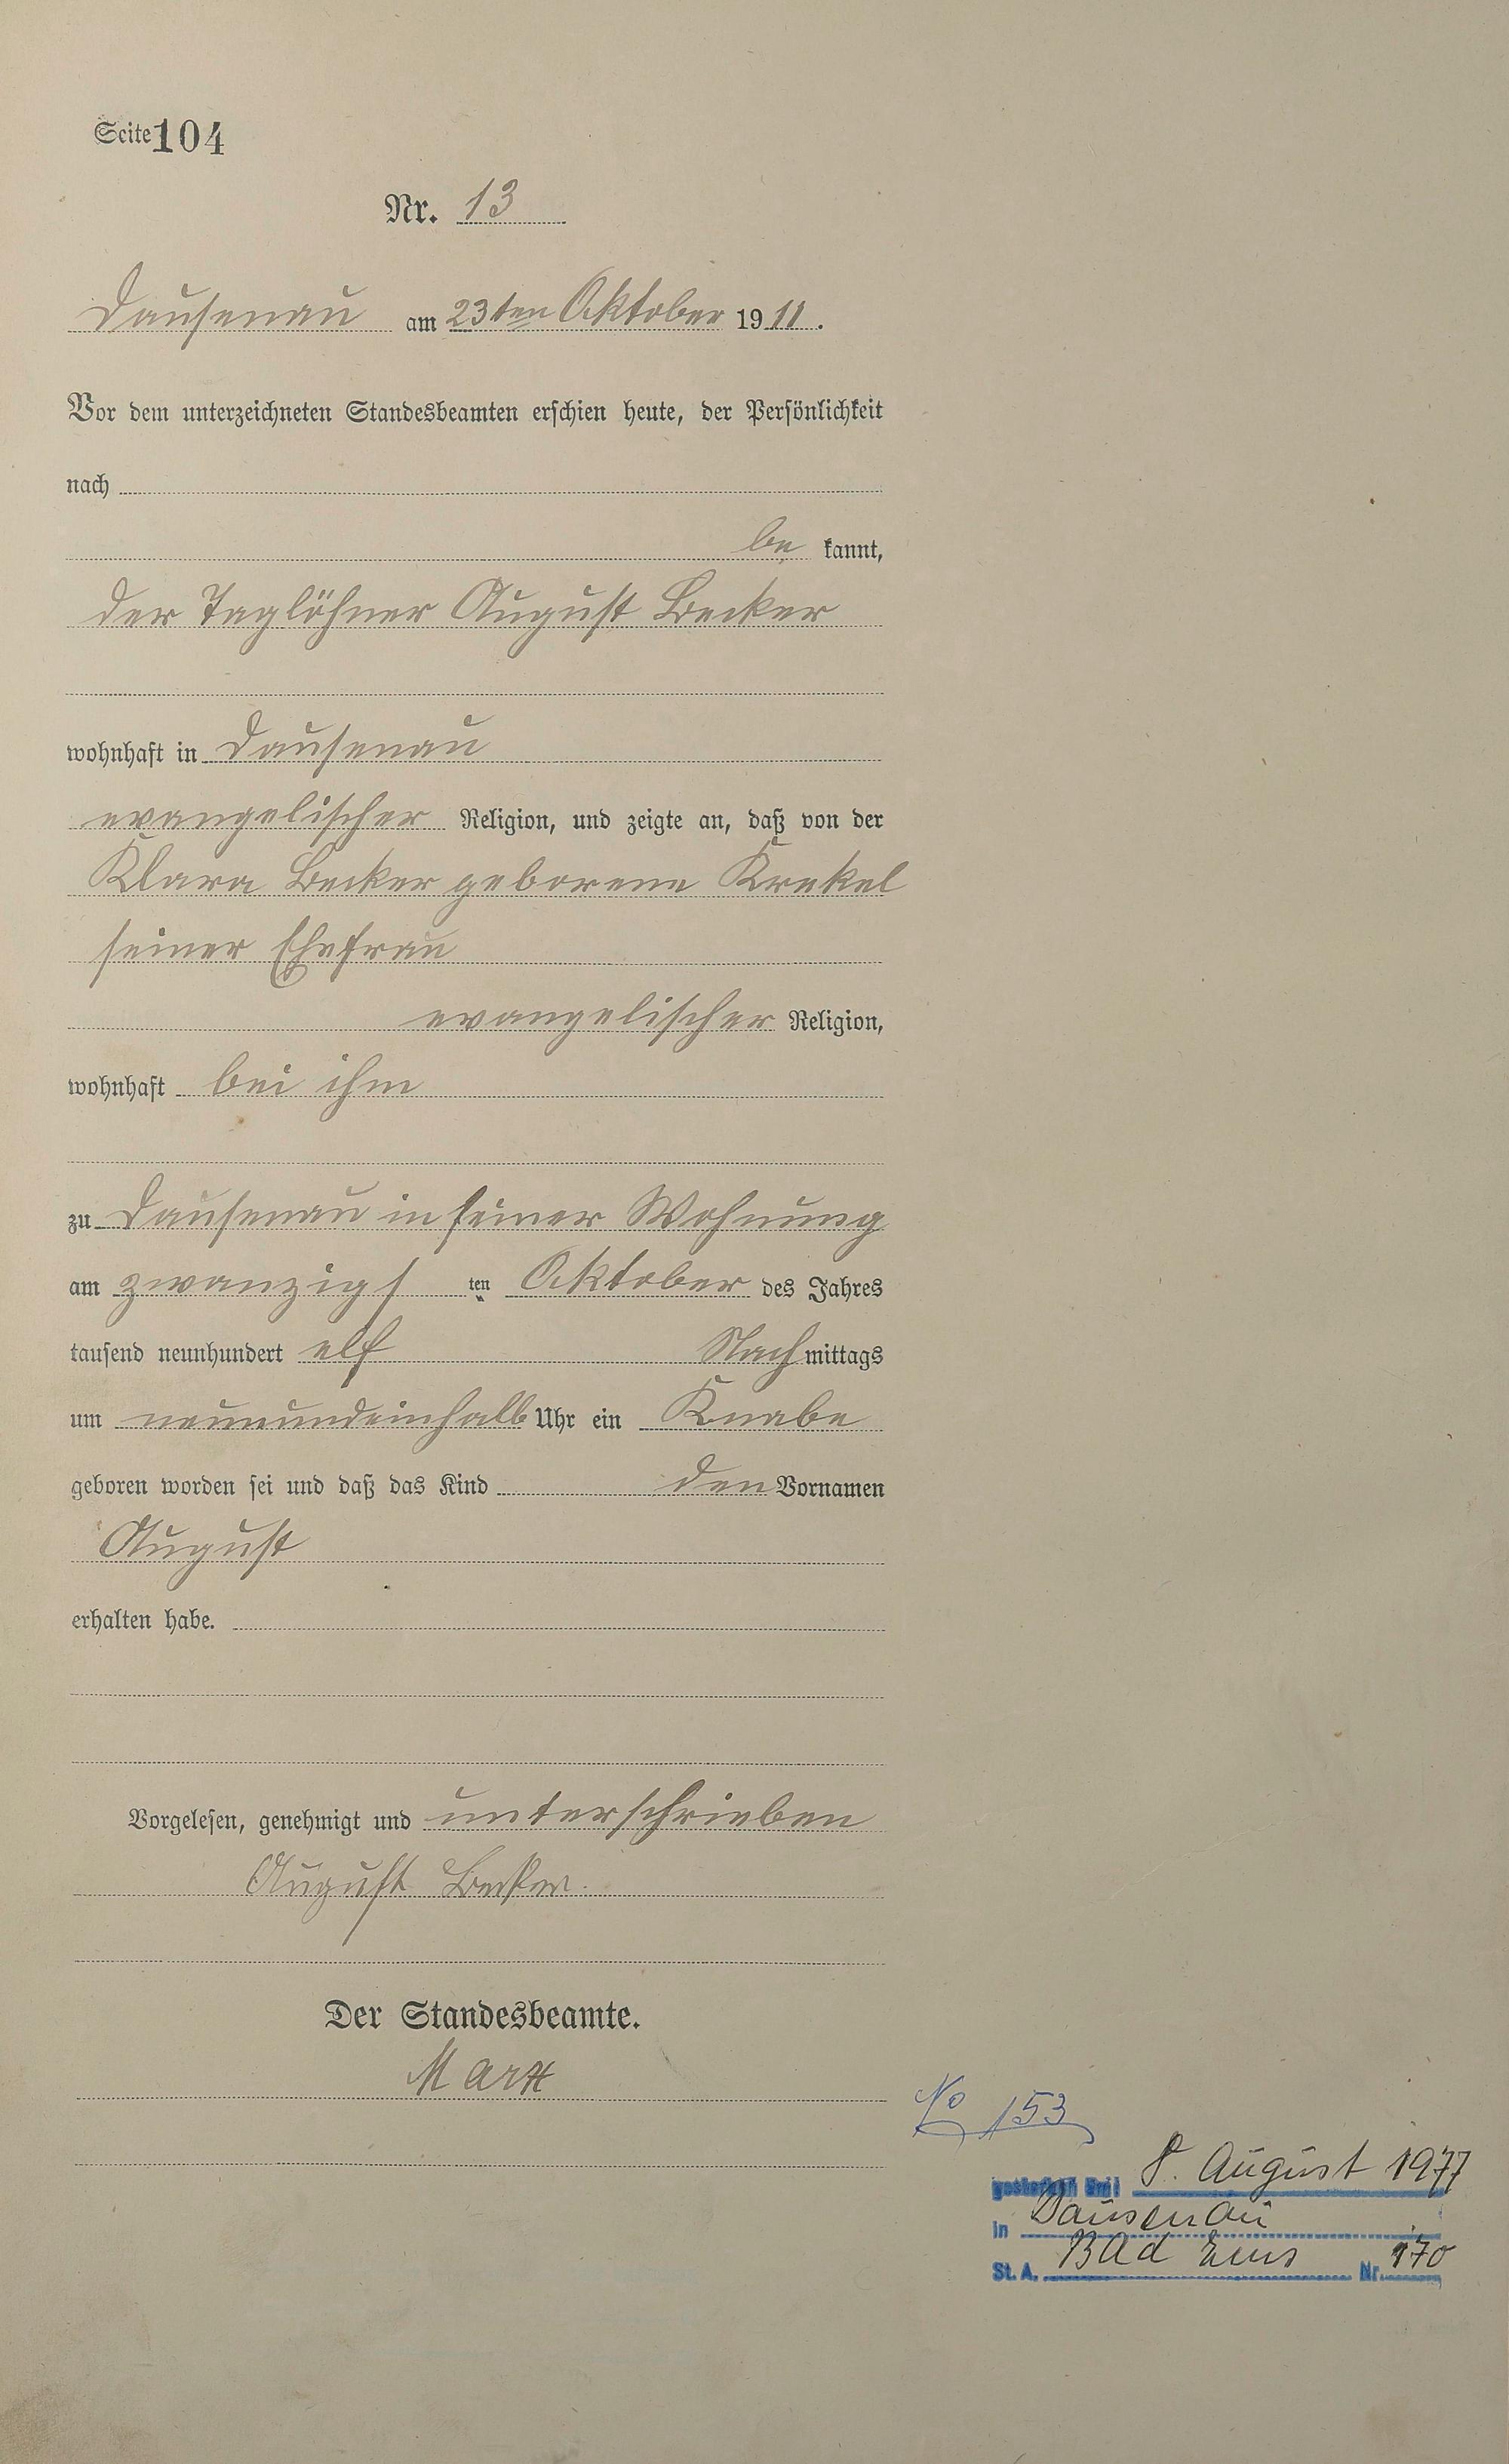 Seite 104
Nr. 13
Dausenau am 23ten Oktober 1911.
Vor dem unterzeichneten Standesbeamten erschien heute, der Persönlichkeit
nach
be kannt,
der Taglöhner August Becker
wohnhaft in Dausenau
evangelischer Religion, und zeigte an, daß von der
Klara Becker geborene Krekel
seiner Ehefrau
evangelischer Religion,
wohnhaft bei ihm
zu Dausenau in seiner Wohnung
am zwanzigsten Oktober des Jahres
tausend neunhundert elf Nachmittags
um neunundeinhalb Uhr ein Knabe
geboren worden sei und daß das Kind den Vornamen
August
erhalten habe.
Vorgelesen, genehmigt und unterschrieben
August Becker.
Der Standesbeamte.
No 153
8. August 1977
in Dausenau
St. A. Bad Ems Nr. 170